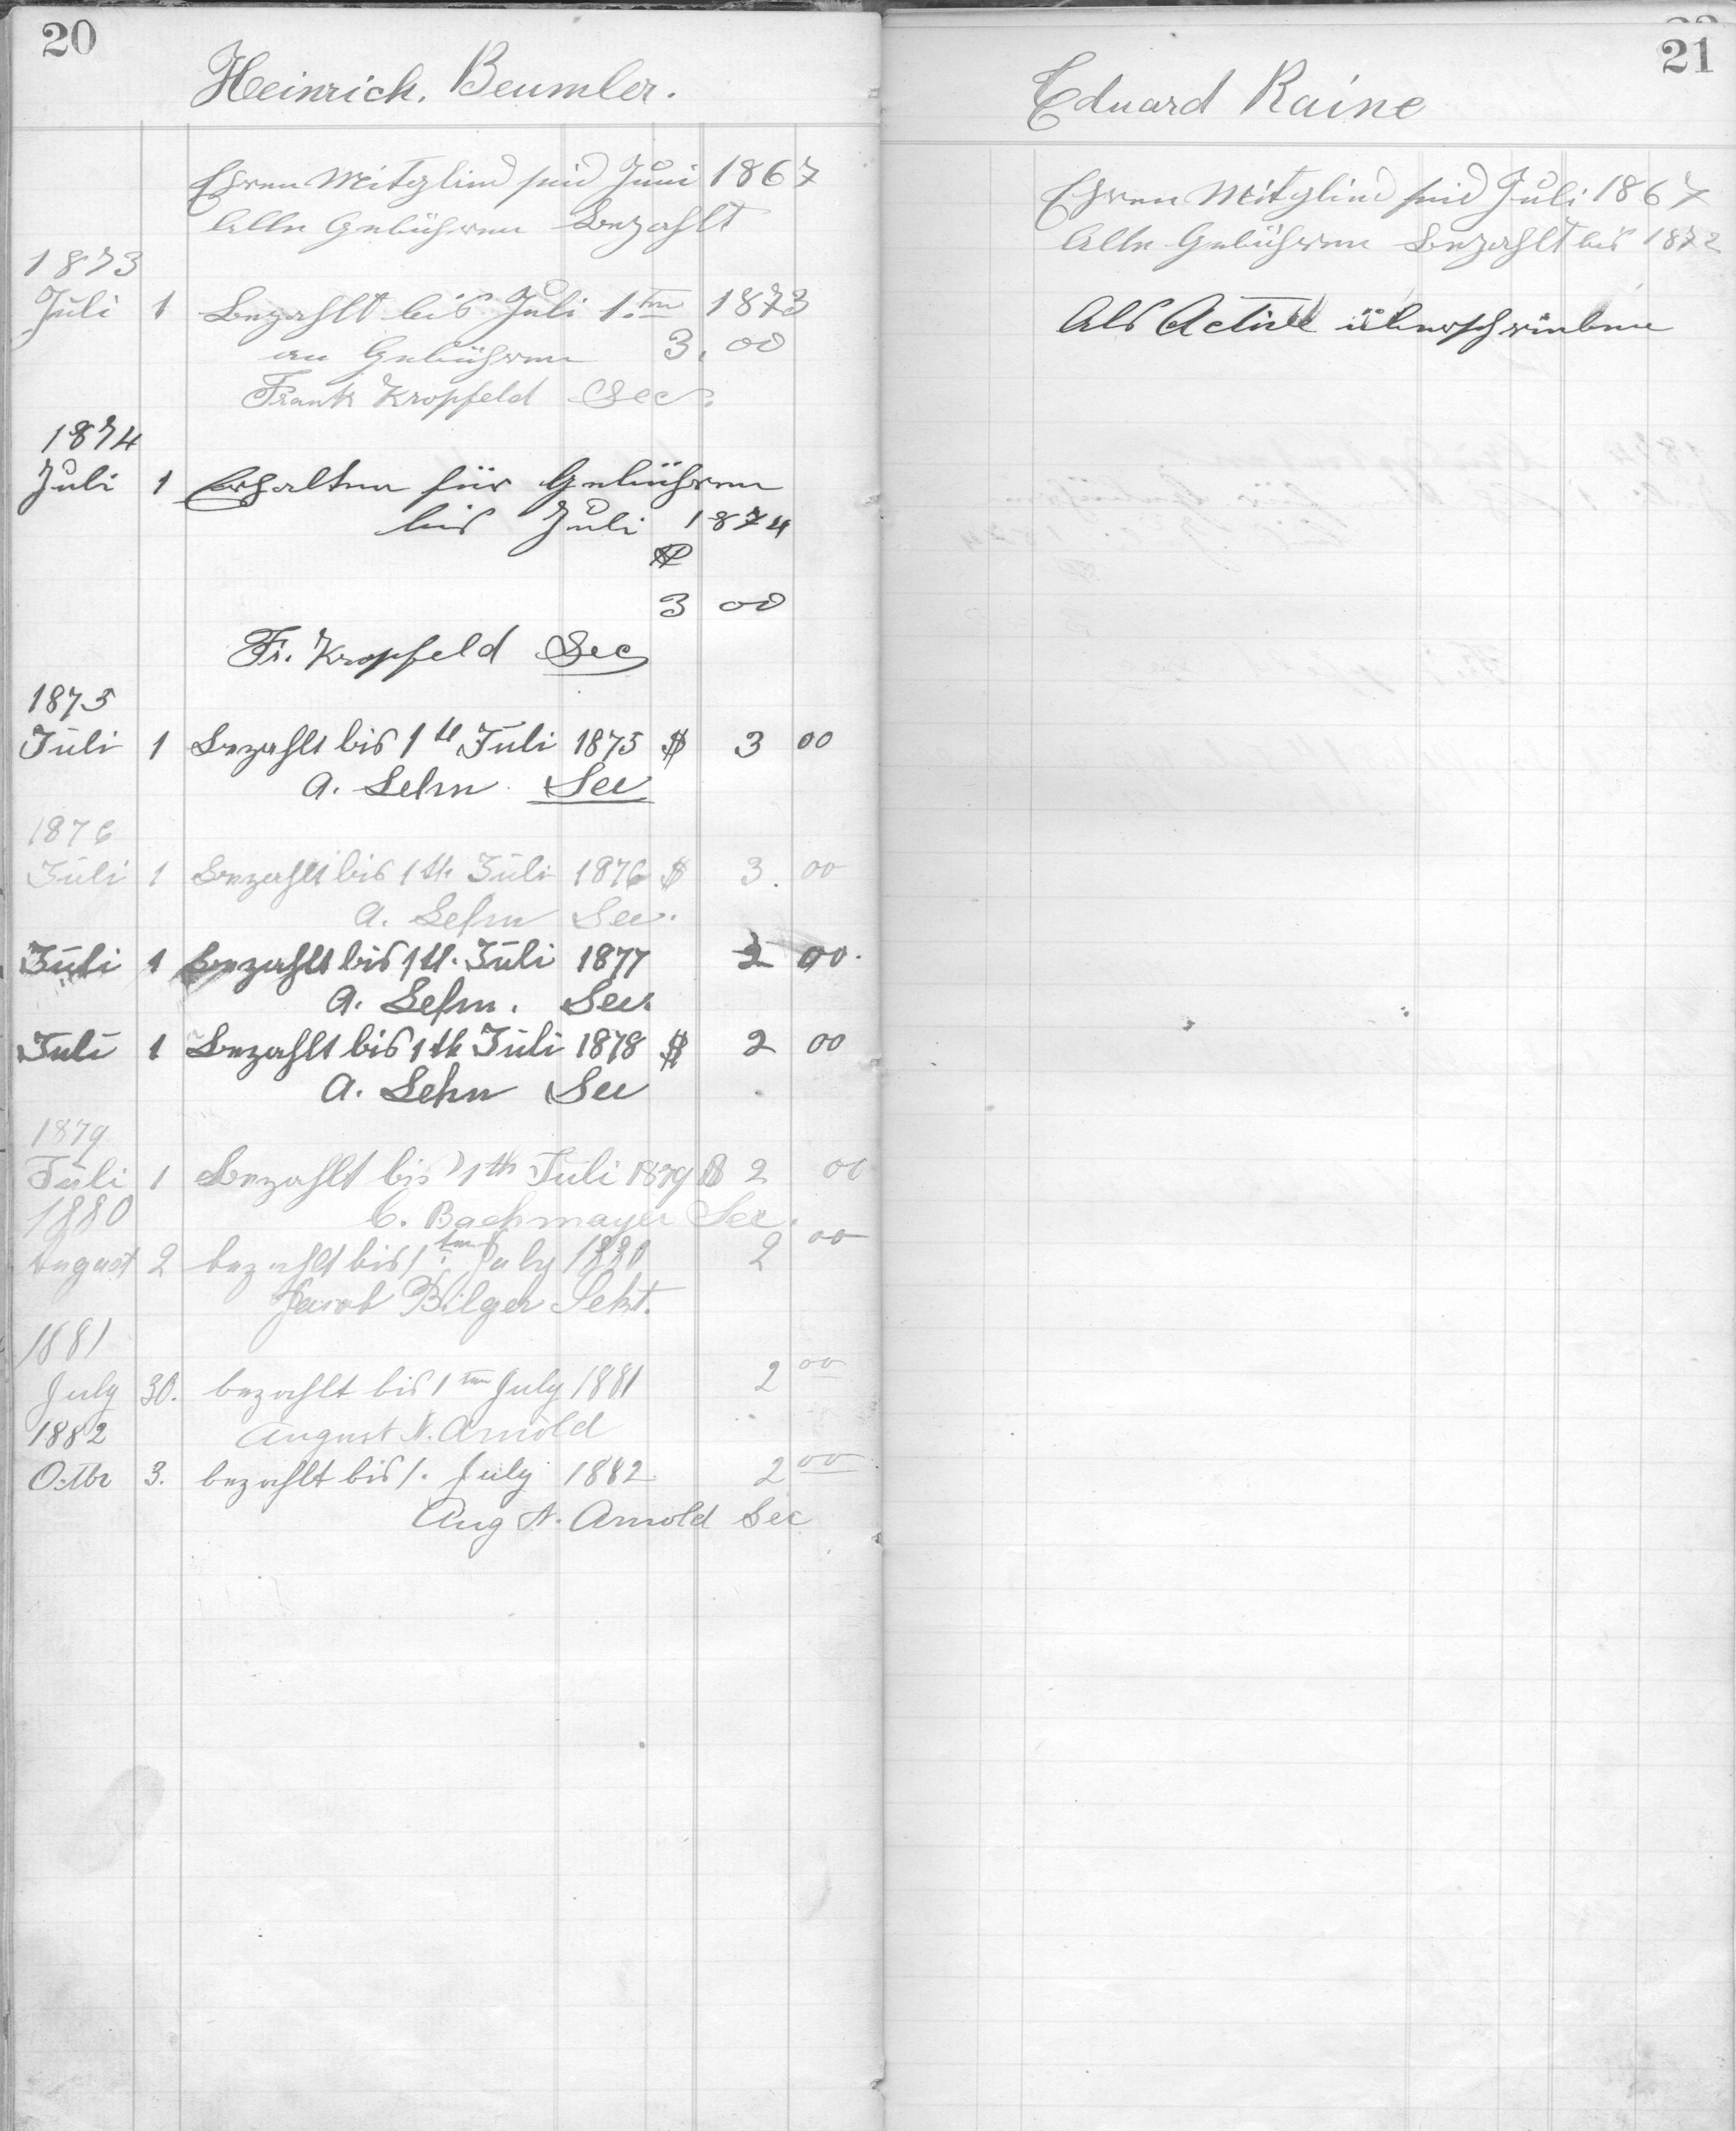 20
Heinrich. Beumler.
Ehren Mitglied seid Juni 1867
Alle Gebühren Bezahlt
1873
Juli 1 Bezahlt bis Juli 1.ten 1873
an Gebühren 3.00
Frank Kropfeld Sec.
1874
Juli 1 Erhalten für Gebühren
bis Juli 1874
$
3 00
Fr. Kropfeld Sec
1875
Juli 1 Bezahlt bis 1te Juli 1875 $ 3 00
A. Lehn Sec.
1876
Juli 1 Bezahlt bis 1th Juli 1876 $ 3.00
A. Lehn Sec.
Juli 1 Bezahlt bis 1th. Juli 1877 2 00.
A. Lehn. Sec.
Juli 1 Bezahlt bis 1th Juli 1878 $ 2 00
A. Lehn Sec
1879
Juli 1 Bezahlt bis 1th Juli 1879 $ 2 00
C. Bachmayer Sec.
1880
August 2 bezahlt bis 1.ten July 1880 2 00
Jacob Bilger Sekt.
1881
July 30. bezahlt bis 1ten July 1881 2 00
August N. Arnold
1882
Octbr 3. bezahlt bis 1. July 1882 2 00
Aug N. Arnold Sec
21
Eduard Raine
Ehren Mitglied seid Juli 1867
Alle Gebühren Bezahlt bis 1872
Als Active überschrieben